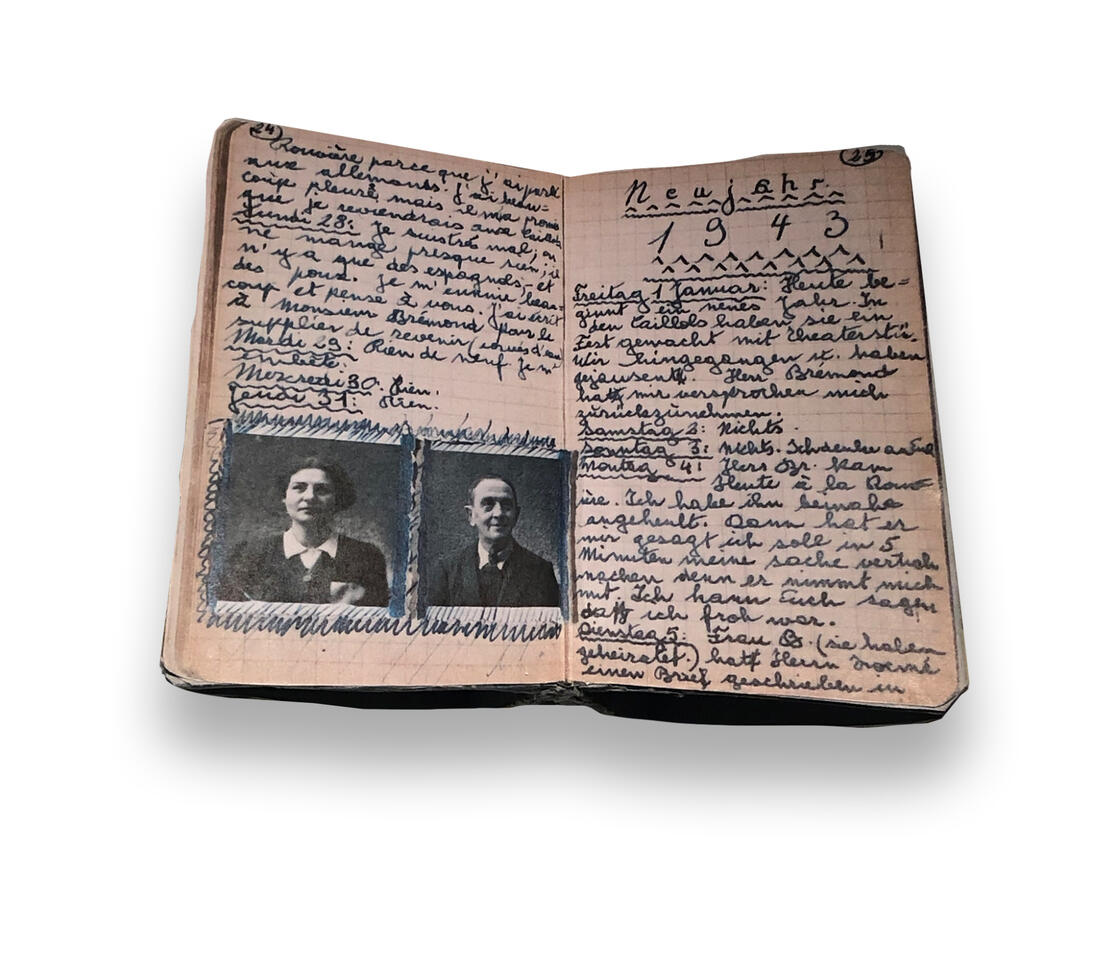 24
Rouvière parce que j'ai parlé
aux allemands. J'ai beau-
coup pleuré, mais il m'a promis
que je reviendrais aux Caillols
Lundi 28: Je suis très mal; on
ne mange presque rien; il
n'y a que des espagnols et
des poux. Je m'ennuie beau-
coup et pense à vous. J'ai écrit
à Monsieur Brémond pour le
supplier de revenir
Mardi 29: Rien de neuf. Je m'
embête.
Mercredi 30: Rien.
Jeudi 31: Rien.
25
Neujahr
1943
Freitag 1 Januar: Heute be=
ginnt ein neues Jahr. In
den Caillols haben sie ein
Fest gemacht mit Theaterstü.
Wir hingegangen u. haben
gejausent. Herr Bremond
hat mir versprochen mich
zurückzunehmen.
Samstag 2: Nichts.
Sonntag 3: Nichts.
Montag 4: Herr Br. kam
Heute à la Rouv-
ière. Ich habe ihn beinahe
angeheult. Dann hat er
mir gesagt ich soll in 5
Minuten meine sache
machen denn er nimmt mich
mit. Ich kann Euch sagen
daß ich froh war.
Dienstag 5: Frau B. (sie haben
geheiratet) hat Herrn
einen Brief geschrieben in